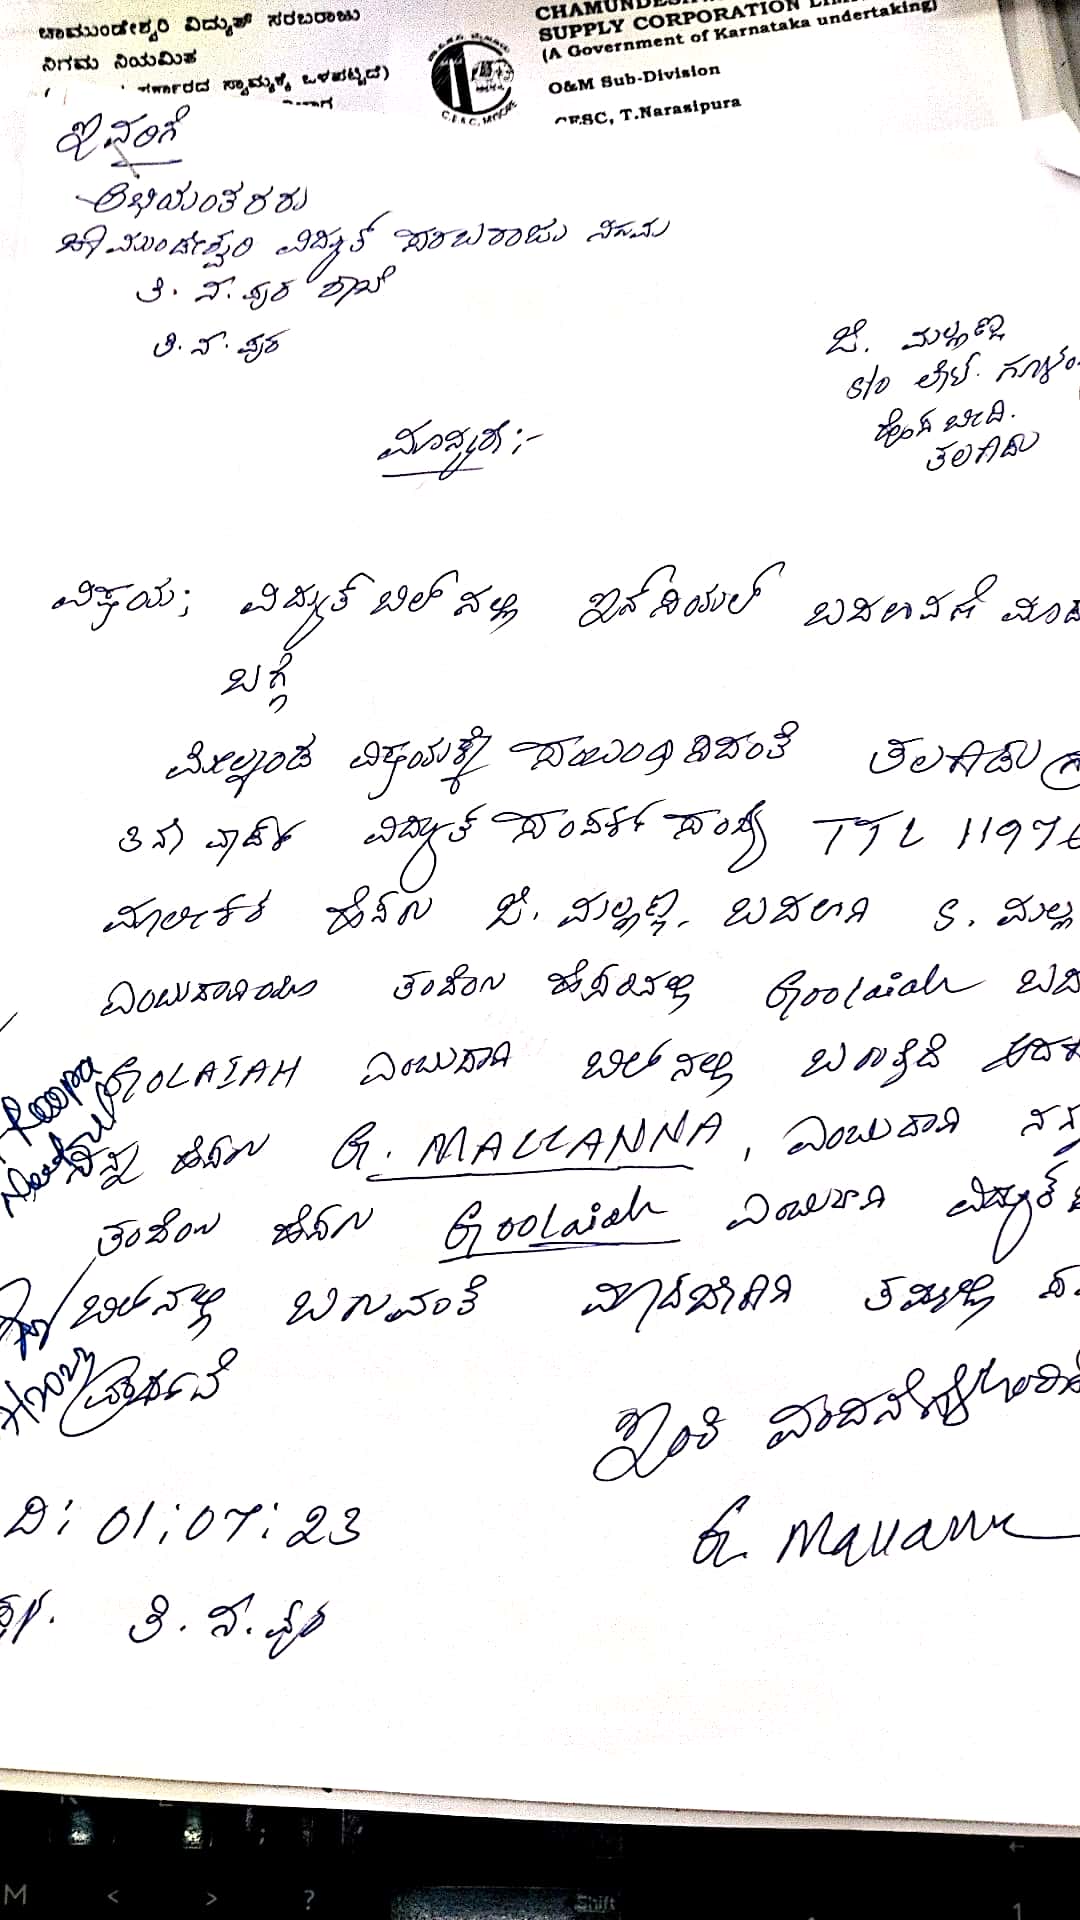 ಚಾಮುಂಡೇಶ್ವರಿ ವಿದ್ಯುತ್ ಸರಬರಾಜು
ನಿಗಮ ನಿಯಮಿತ
ಸರ್ಕಾರದ ಸ್ವಾಮ್ಯಕ್ಕೆ ಒಳಪಟ್ಟಿದೆ)
SUPPLY CORPORATION
(A Government of Karnataka undertaking)
O&M Sub-Division
CESC, T.Narasipura
ಇವರಿಗೆ
ಅಭಿಯಂತರರು
ಚಾಮುಂಡೇಶ್ವರಿ ವಿದ್ಯುತ್ ಸರಬರಾಜು ನಿಗಮ
ತಿ. ನ. ಪುರ ಶಾಖೆ
ತಿ. ನ. ಪುರ
ಜಿ. ಮಲ್ಲಣ್ಣ
S/o ಲೇಟ್.
ಬೀದಿ.
ತಲಕಾಡು
ಮಾನ್ಯರೆ:-
ವಿಷಯ; ವಿದ್ಯುತ್ ಬಿಲ್ ನಲ್ಲಿ ಇನ್ಶಿಯಲ್ ಬದಲಾವಣೆ
ಬಗ್ಗೆ
ಮೇಲ್ಕಂಡ ವಿಷಯಕ್ಕೆ ಸಂಬಂಧಿಸಿದಂತೆ ತಲಕಾಡು
3 ನೇ ವಾರ್ಡ್ ವಿದ್ಯುತ್ ಸಂಪರ್ಕ ಸಂಖ್ಯೆ TTL 1197
ಮಾಲೀಕರ ಹೆಸರು ಜಿ. ಮಲ್ಲಣ್ಣ ಬದಲಾಗಿ S.
ಎಂಬುದಾಗಿಯೂ ತಂದೆಯ ಹೆಸರಿನಲ್ಲಿ Goolaiah
GOLAIAH ಎಂಬುದಾಗಿ ಬಿಲ್ ನಲ್ಲಿ ಬರುತ್ತಿದೆ
ನನ್ನ ಹೆಸರು G. MALLANNA, ಎಂಬುದಾಗಿ ನನ್ನ
ತಂದೆಯ ಹೆಸರು Goolaiah ಎಂಬುದಾಗಿ ವಿದ್ಯುತ್
ಬಿಲ್ ನಲ್ಲಿ ಬರುವಂತೆ ಮಾಡಬೇಕಾಗಿ ತಮ್ಮಲ್ಲಿ
ಪ್ರಾರ್ಥನೆ
Roopa
ಇಂತಿ ವಂದನೆಗಳೊಂದಿಗೆ
D: 01:07:23
G. Mallanna
ತಿ. ನ. ಪುರ